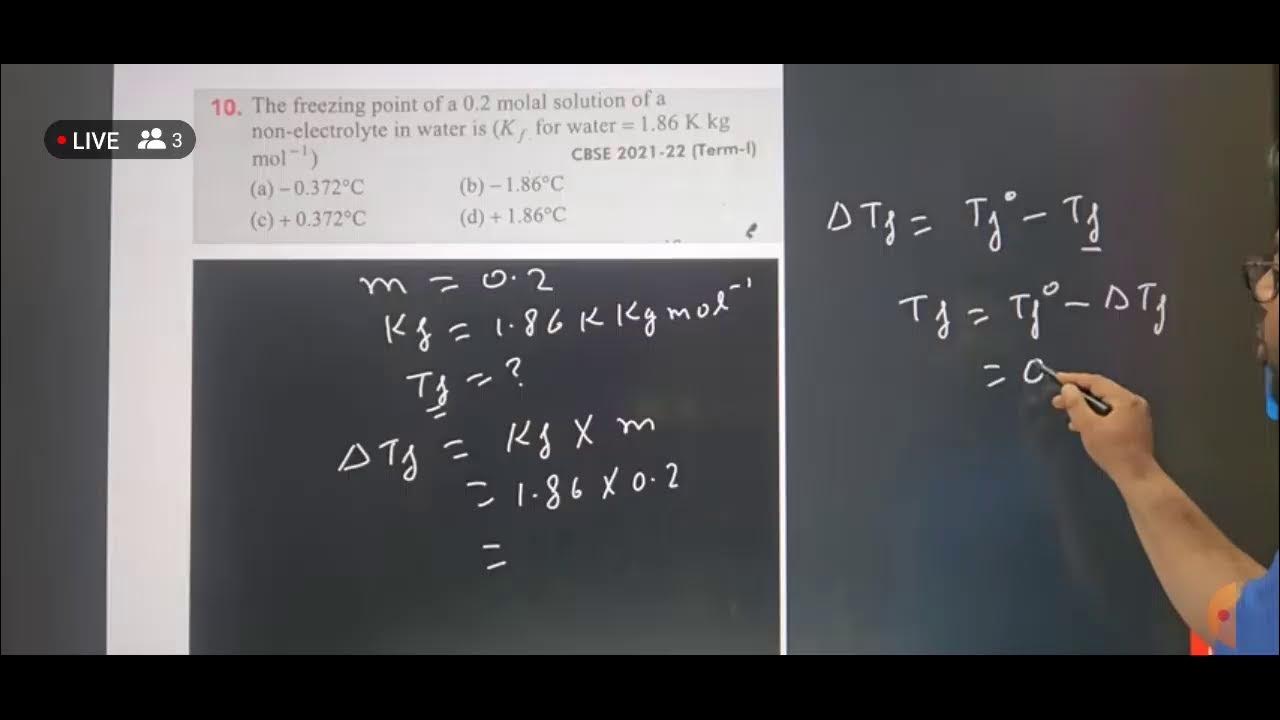 LIVE 3
10. The freezing point of a 0.2 molal solution of a
non-electrolyte in water is (K_f for water = 1.86 K kg
mol⁻¹) CBSE 2021-22 (Term-I)
(a) – 0.372°C (b) – 1.86°C
(c) + 0.372°C (d) + 1.86°C
m = 0.2
Kf = 1.86 K Kg mol⁻¹
Tf = ?
ΔTf = Kf × m
= 1.86 × 0.2
=
ΔTf = Tf° – Tf
Tf = Tf° – ΔTf
= 0